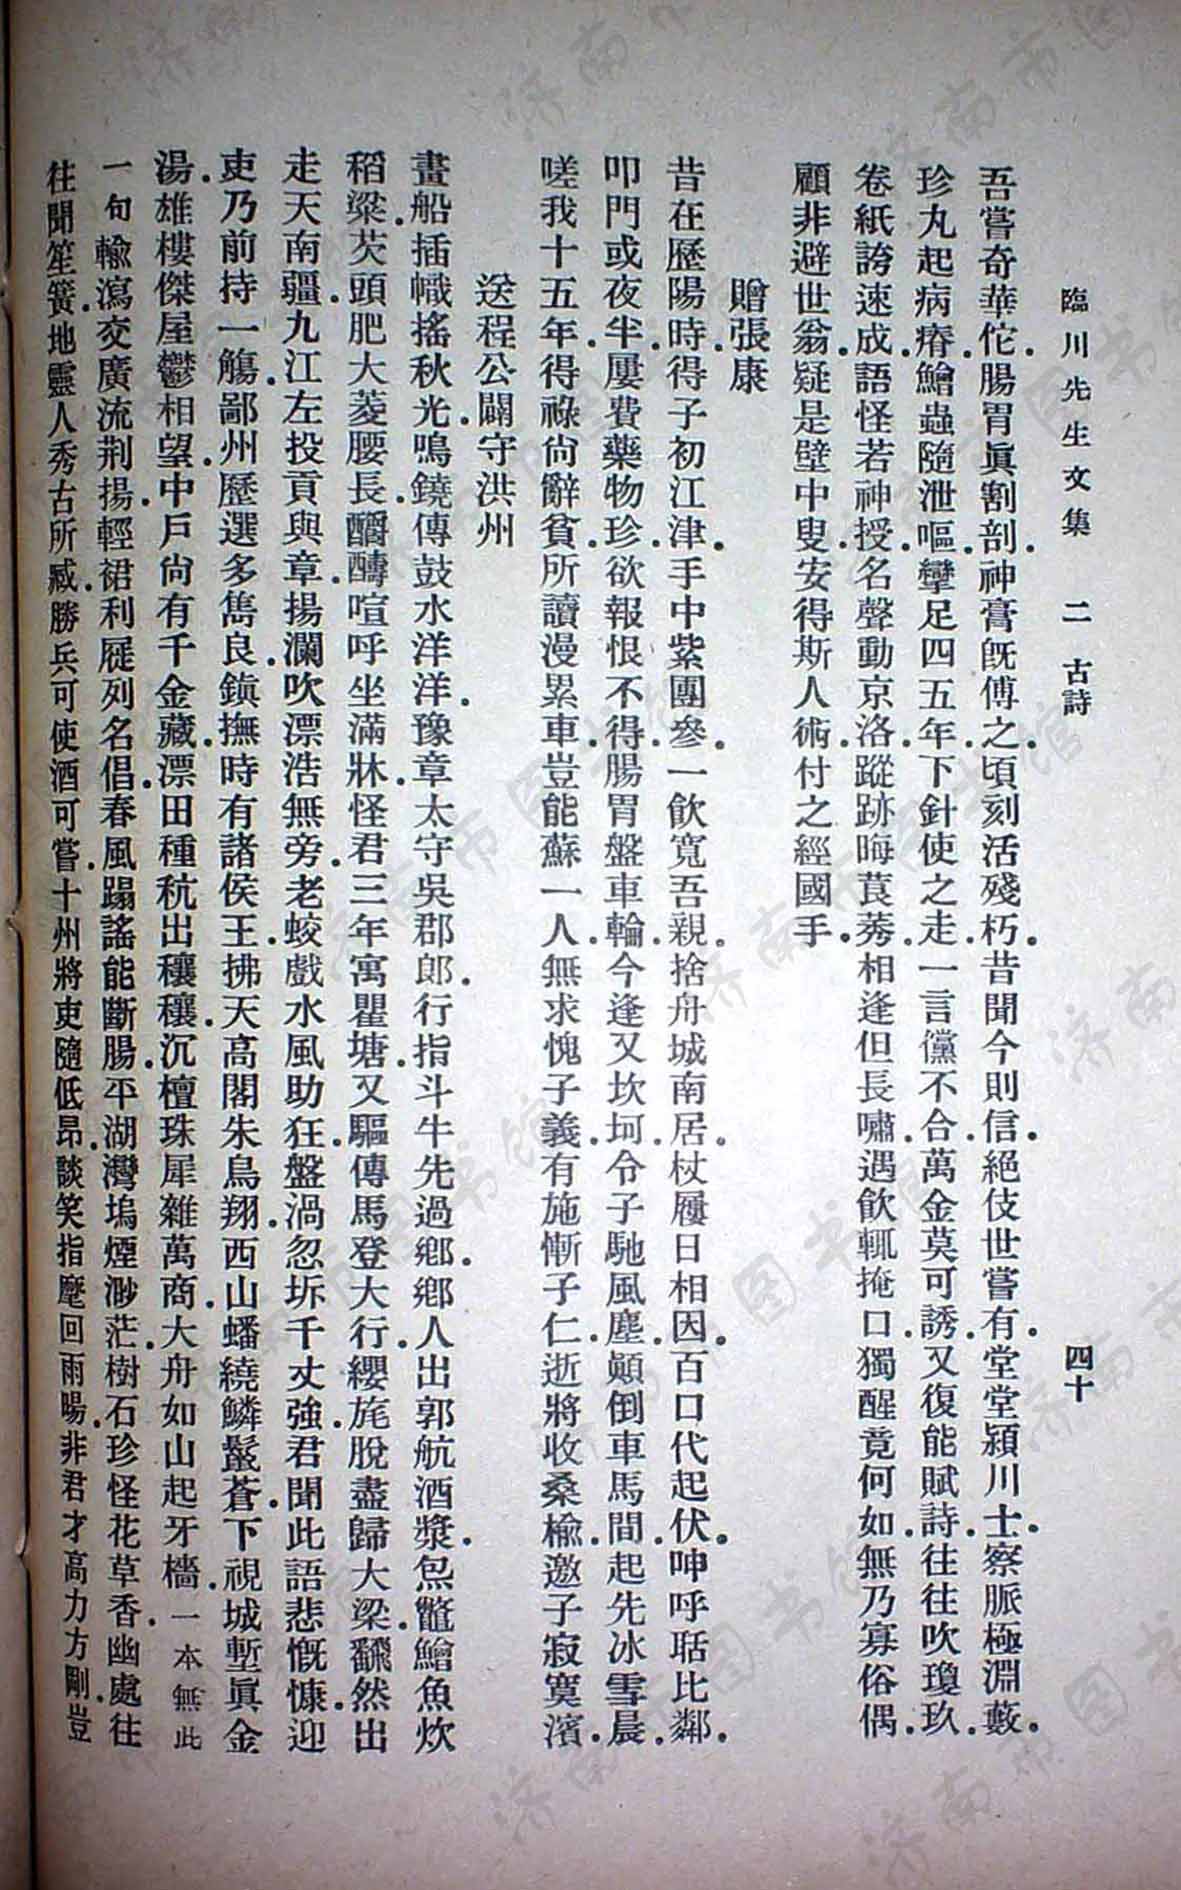 臨川先生文集　二　古詩　四十
吾嘗奇華佗。腸胃眞割剖。神膏旣傅之。頃刻活殘朽。昔聞今則信。絕伎世嘗有。堂堂潁川士。察脈極淵藪。
珍丸起病瘠。鱠蟲隨泄嘔。攣足四五年。下針使之走。一言儻不合。萬金莫可誘。又復能賦詩。往往吹瓊玖。
卷紙誇速成。語怪若神授。名聲動京洛。蹤跡晦莨莠。相逢但長嘯。遇飮輒掩口。獨醒竟何如。無乃寡俗偶。
顧非避世翁。疑是壁中叟。安得斯人術。付之經國手。
贈張康
昔在歷陽時。得子初江津。手中紫團參。一飮寬吾親。捨舟城南居。杖屨日相因。百口代起伏。呻呼聒比鄰。
叩門或夜半。屢費藥物珍。欲報恨不得。腸胃盤車輪。今逢又坎坷。令子馳風塵。顚倒車馬間。起先冰雪晨。
嗟我十五年。得祿尙辭貧。所讀漫累車。豈能蘇一人。無求愧子義。有施慚子仁。逝將收桑楡。邀子寂寞濱。
送程公闢守洪州
畫船插幟搖秋光。鳴鐃傳鼓水洋洋。豫章太守吳郡郎。行指斗牛先過鄕。鄕人出郭航酒漿。炰鼈鱠魚炊
稻粱。芡頭肥大菱腰長。釂醻喧呼坐滿牀。怪君三年寓瞿塘。又驅傳馬登大行。纓旄脫盡歸大梁。翻然出
走天南疆。九江左投貢與章。揚瀾吹漂浩無旁。老蛟戲水風助狂。盤渦忽坼千丈強。君聞此語悲慨慷。迎
吏乃前持一觴。鄙州歷選多雋良。鎭撫時有諸侯王。拂天高閣朱鳥翔。西山蟠繞鱗鬣蒼。下視城塹眞金
湯。雄樓傑屋鬱相望。中戶尙有千金藏。漂田種秔出穰穰。沉檀珠犀雜萬商。大舟如山起牙檣。一本無此
一句輸瀉交廣流荆揚。輕裙利屣列名倡。春風蹋謠能斷腸。平湖灣塢煙渺茫。樹石珍怪花草香。幽處往
往聞笙簧。地靈人秀古所臧。勝兵可使酒可嘗。十州將吏隨低昂。談笑指麾回雨暘。非君才高力方剛。豈